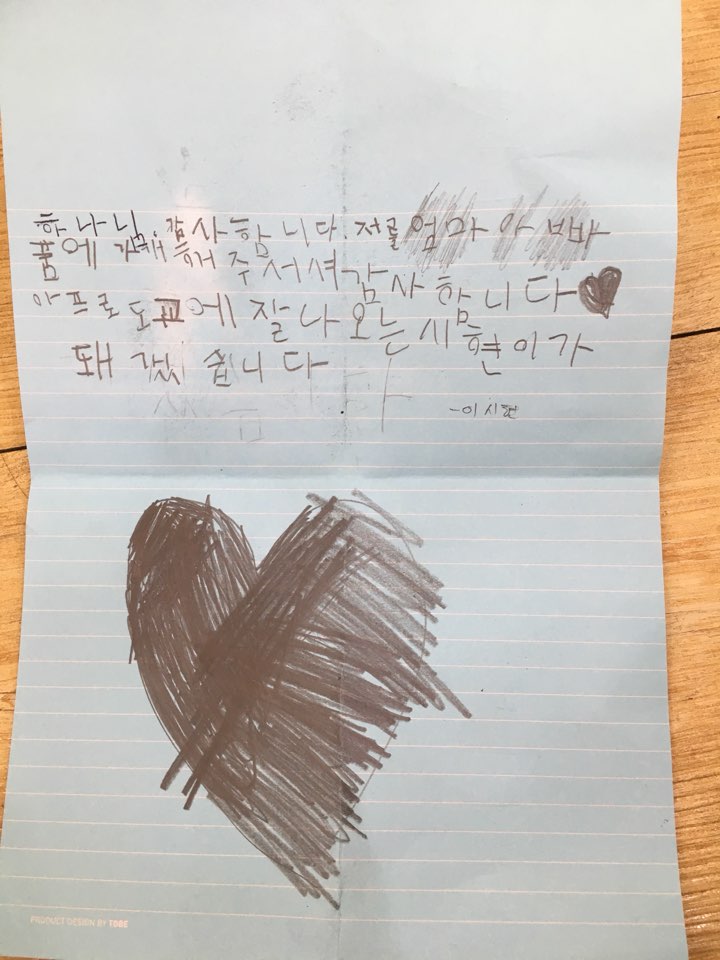 하나님. 감사함니다. 저를 엄마 아빠
품에 주서셔 감사함니다
아프로도 교에 잘 나오는 시현이가
돼
-이시현
PRODUCT DESIGN BY TOBE